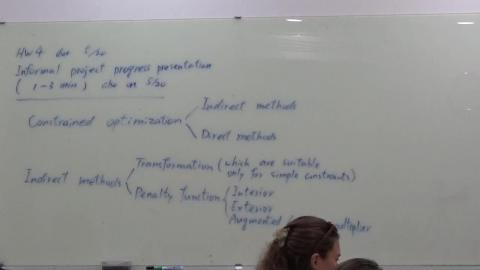 HW4 due 5/20
Informal project progress presentation
( 1-3 min ) also on 5/20
Constrained optimization
Indirect methods
Direct methods
Indirect methods
Transformation (which are suitable
only for simple constraints)
Penalty function
Interior
Exterior
Augmented
multiplier